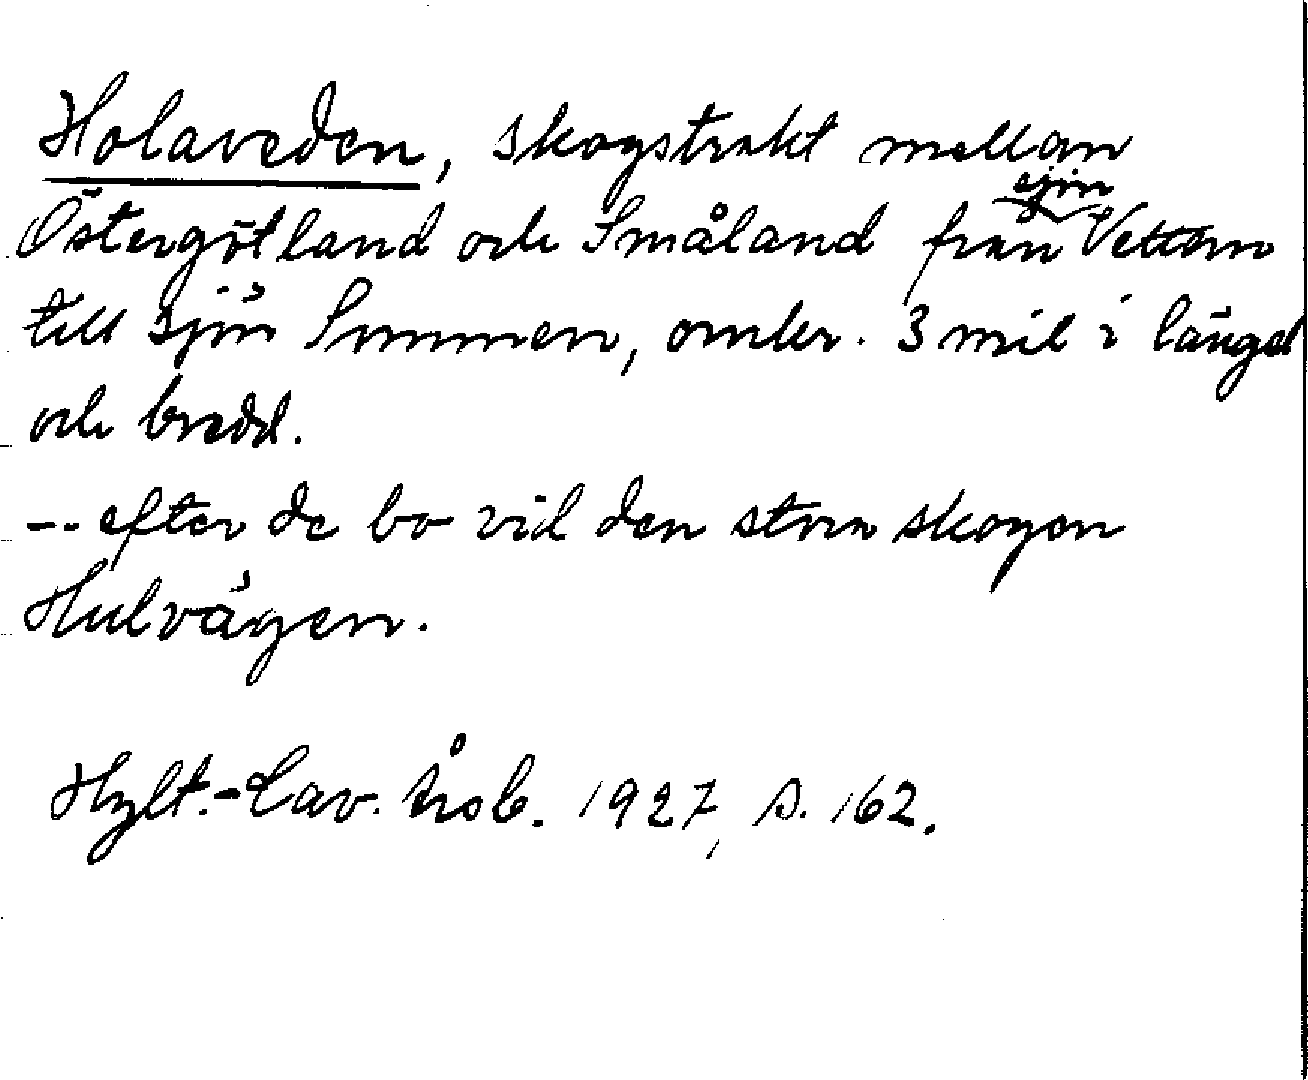 Holaveden, skogstrakt mellan
Östergötland och Småland från sjön Vettern
till sjön Sommen, omkr. 3 mil i längd
och bredd.
-- efter de bo vid den stora skogen
Hulvägen.
Hylt.-Cav. årsb. 1927, s. 162.